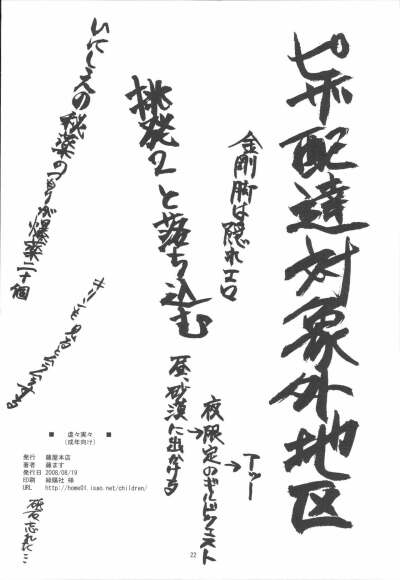 ピザ配達対象外地区
金剛脚は隠れエロ
挑発2と落ち込む
昼、砂漠に出かける
→夜限定のギルドクエスト
→アッー
いにしえの秘薬のつもりが爆薬二十個
■ 虚々実々 ■
(成年向け)
発行 藤屋本店
著者 藤ます
発行日 2008/08/19
印刷 緑陽社 様
URL http://home01.isao.net/children/
砥石忘れた…
22